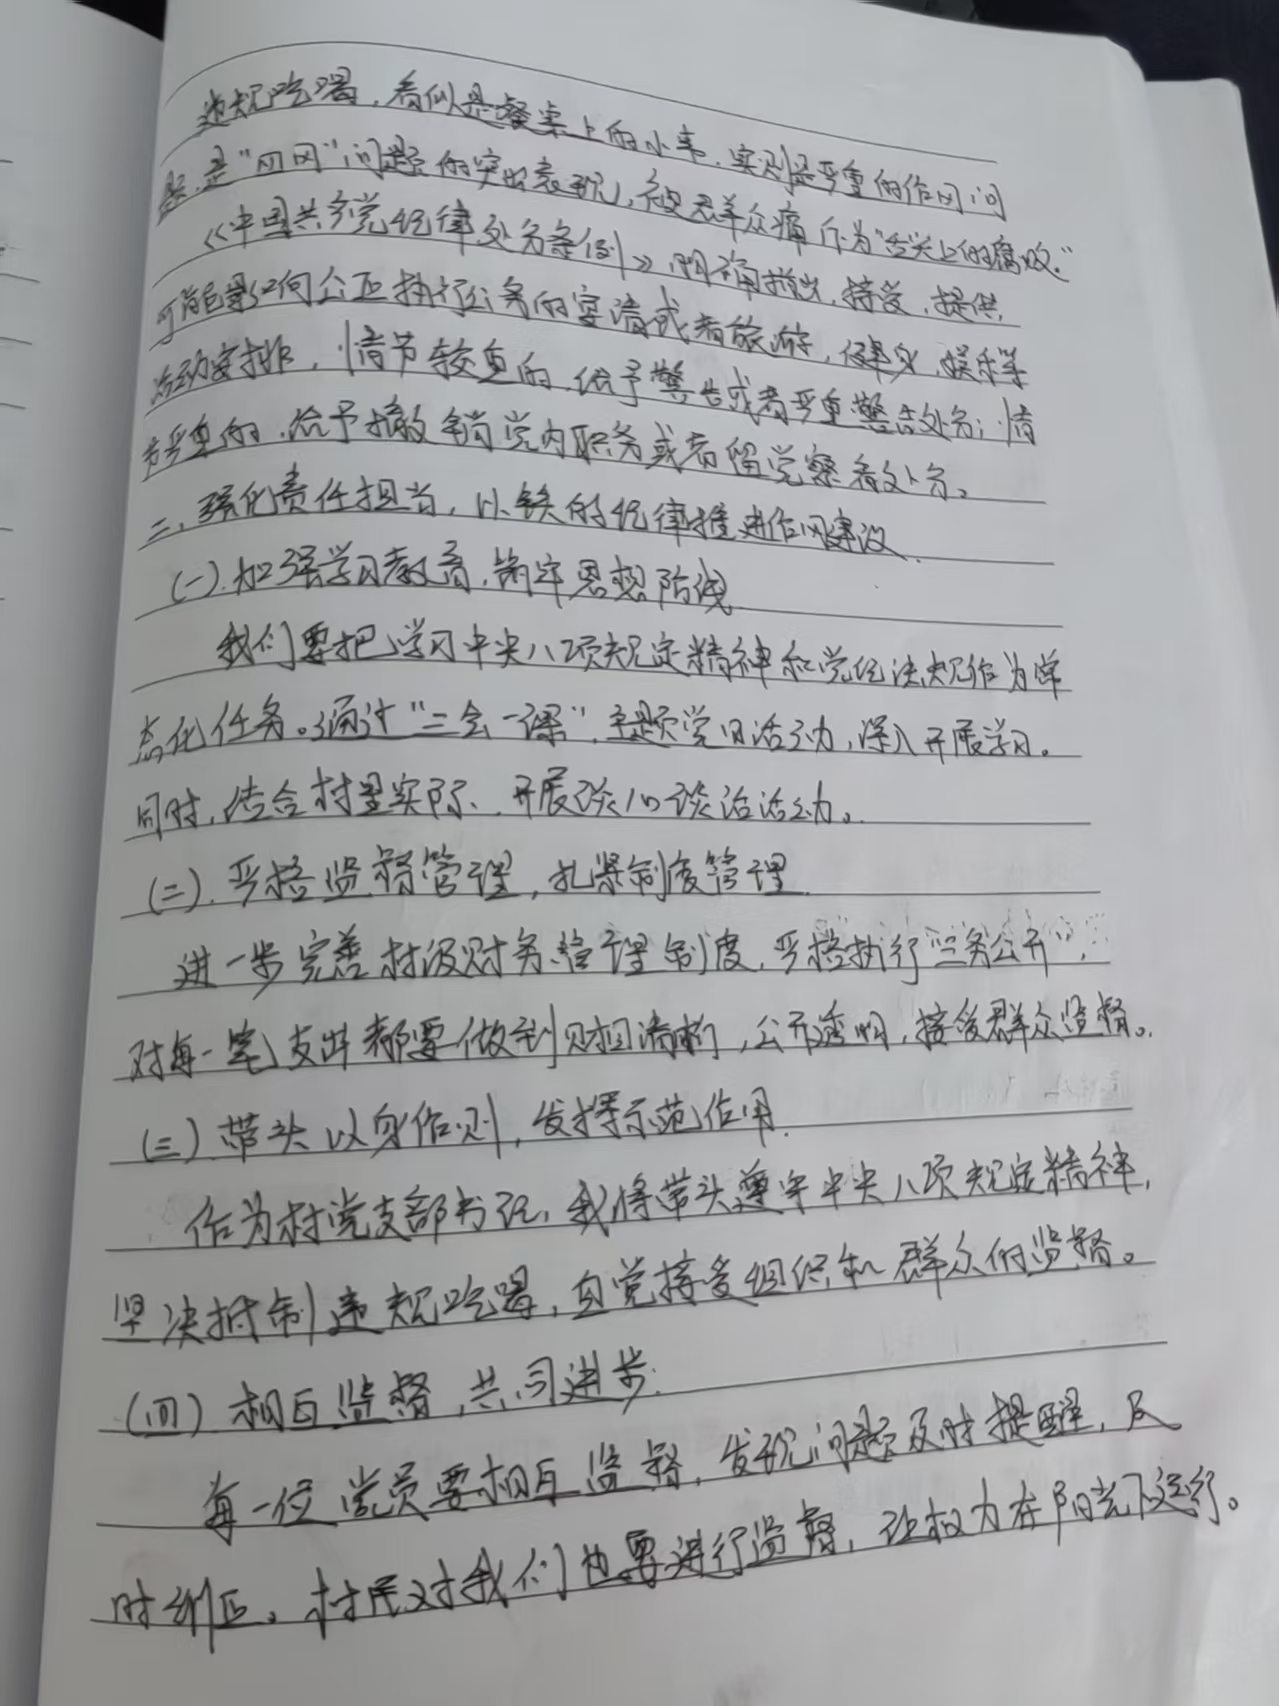 违规吃喝，看似是餐桌上的小事，实则是严重的作风问
题，是“四风”问题的突出表现，被群众痛斥为“舌尖上的腐败”
《中国共产党纪律处分条例》明确指出，接受、提供
可能影响公正执行公务的宴请或者旅游，健身，娱乐等
活动安排，情节较重的，给予警告或者严重警告处分；情
节严重的，给予撤销党内职务或者留党察看处分。
二，强化责任担当，以铁的纪律推进作风建设
（一）.加强学习教育，筑牢思想防线
我们要把学习中央八项规定精神和党纪法规作为常
态化任务。通过“三会一课”，主题党日活动，深入开展学习。
同时，结合村里实际，开展谈心谈话活动。
（二）.严格监督管理，扎紧制度管理.
进一步完善村级财务管理制度，严格执行“三务公开”，
对每一笔支出都要做到账目清晰，公开透明，接受群众监督。
（三）.带头以身作则，发挥示范作用.
作为村党支部书记，我将带头遵守中央八项规定精神，
坚决抵制违规吃喝，自觉接受组织和群众的监督。
（四）相互监督，共同进步.
每一位党员要相互监督，发现问题及时提醒，及
时纠正。村民对我们也要进行监督，让权力在阳光下运行。